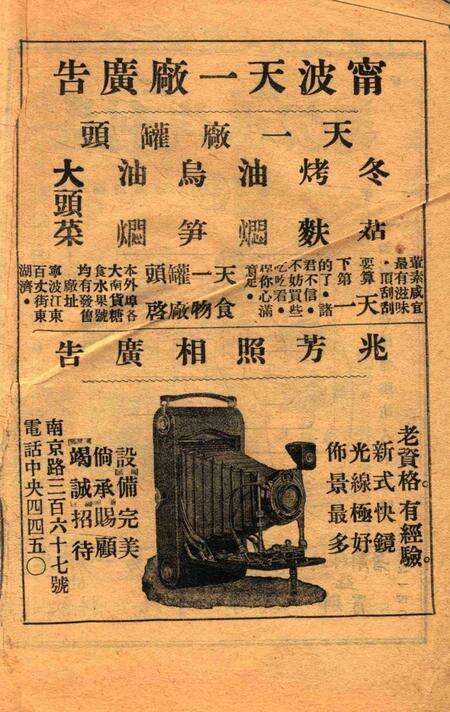 甯波天一廠廣告
天一廠罐頭
冬菇
烤麩
油燜
烏笋
油燜
大頭菜
葷素咸宜
最有滋味
・頂刮刮
要算天
下第一
的了・諸
君不信・
不妨買些
吃吃看・
保你心滿
意足・
天一罐頭
食物廠啓
本外埠各
大南貨糖
食水果號
均有發售
廠址
寧波江東
百丈街東
湖濟・
兆芳照相廣告
老資格。有經驗。
新式快鏡
光線極好
佈景最多
設備完美
倘承賜顧
竭誠招待
南京路二百六十七號
電話中央四四五〇